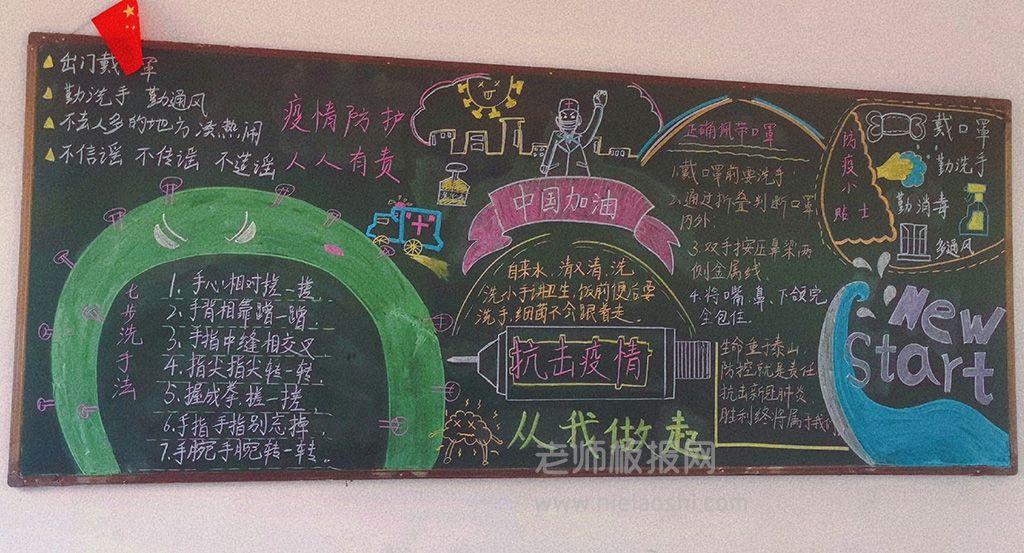 出门戴口罩
勤洗手 勤通风
不去人多的地方凑热闹
不信谣 不传谣 不造谣
疫情防护
人人有责
七步洗手法
1.手心相对搓一搓,
2.手背相靠蹭一蹭,
3.手指中缝相交叉
4.指尖指尖转一转,
5.握成拳,搓一搓,
6.手指手指别忘掉,
7.手腕手腕转一转。
中国加油
自来水,清又清,洗
洗小手讲卫生,饭前便后要
洗手,细菌不会跟着走。
抗击疫情
从我做起
正确佩带口罩
1.戴口罩前要洗手
2.通过折叠判断口罩
内外.
3.双手按压鼻梁两
侧金属线.
4.将嘴、鼻、下颌完
全包住.
生命重于泰山
防控就是责任
抗击新冠肺炎
胜利终将属于我们
防疫小贴士
戴口罩
勤洗手
勤消毒
多通风
New
Start
老师板报网
www.nielaoshi.com